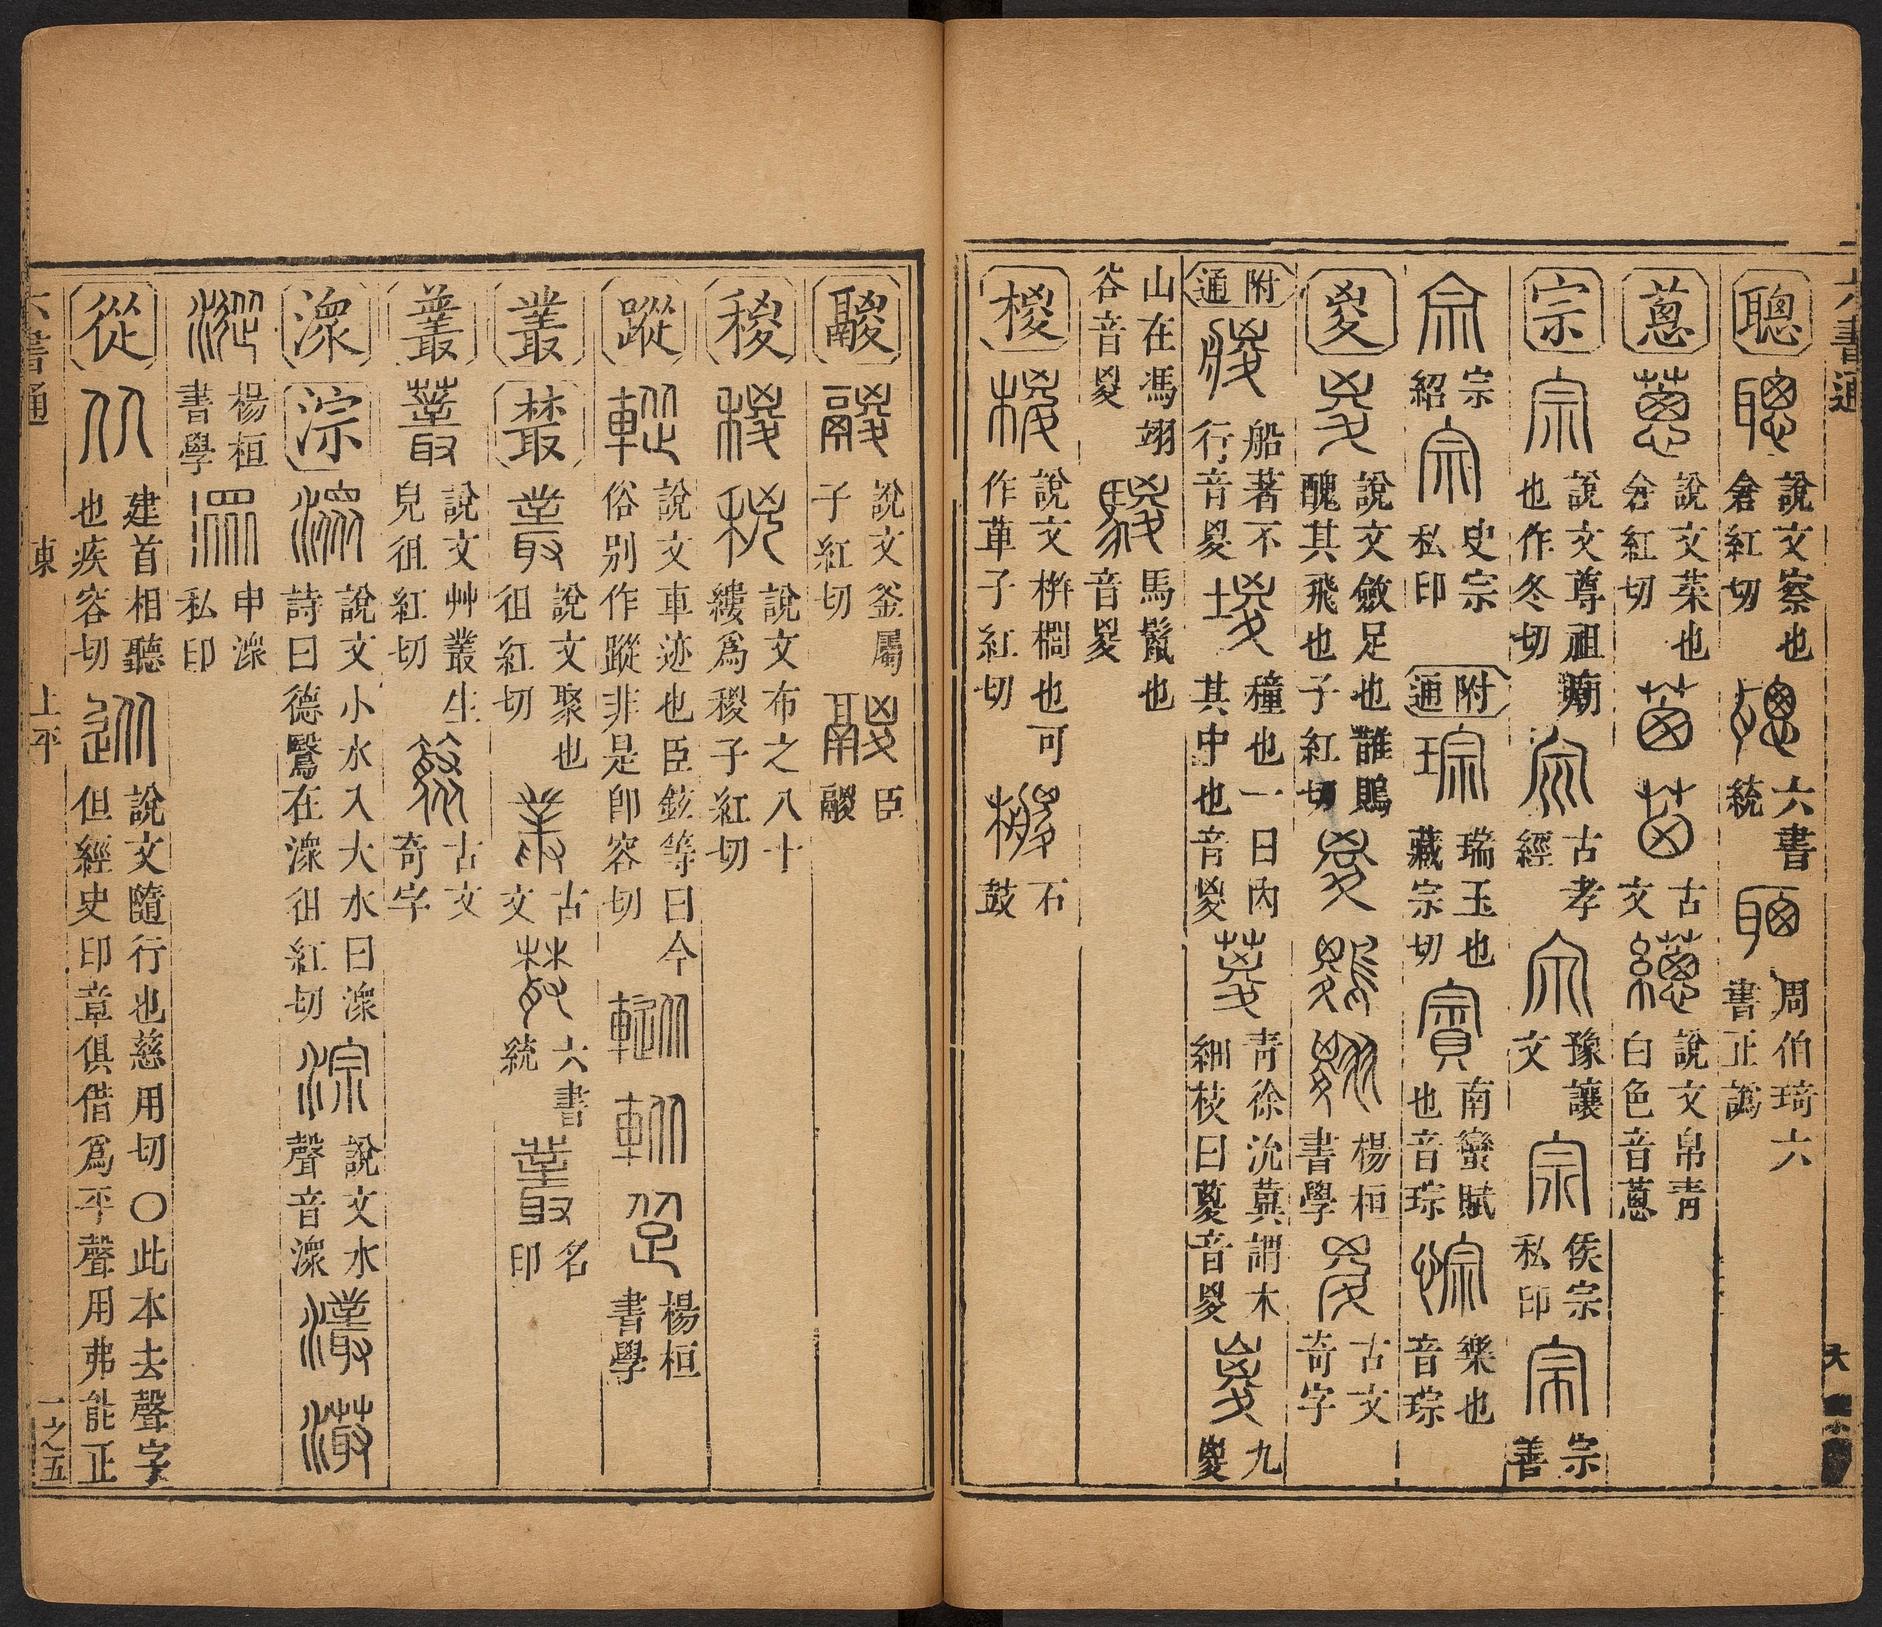 六書通
聰 說文察也倉紅切 六書統 周伯琦六書正譌
蔥 說文菜也倉紅切 古文 說文帛青白色音蔥
宗 說文尊祖廟也作冬切 古孝經 豫讓文 侯宗私印 宗善
宗紹 史宗私印 附通 瑞玉也藏宗切 南蠻賦也音琮 樂也音琮
㚇 說文斂足也䧿鵙醜其飛也子紅切 楊桓書學 古文奇字
附通 船著不行音㚇 種也一曰內其中也音㚇 青徐沇冀謂木細枝曰葼音㚇 九㚇
山在馮翊谷音㚇 馬鬣也音㚇
椶 說文栟櫚也可作萆子紅切 石鼓
鬷 說文釜屬子紅切 臣鬷
稯 說文布之八十縷爲稯子紅切
蹤 說文車迹也臣鉉等曰今俗别作蹤非是卽容切 楊桓書學
叢 藂 說文聚也徂紅切 古文 六書統 名印
叢 說文艸叢生皃徂紅切 古文奇字
潀 淙 說文小水入大水曰潀詩曰德鷖在潀徂紅切 說文水聲音潀
楊桓書學 申潀私印
從 建首相聽也疾容切 說文隨行也慈用切〇此本去聲字但經史印章俱借爲平聲用弗能正
六書通 東 上平 一之五